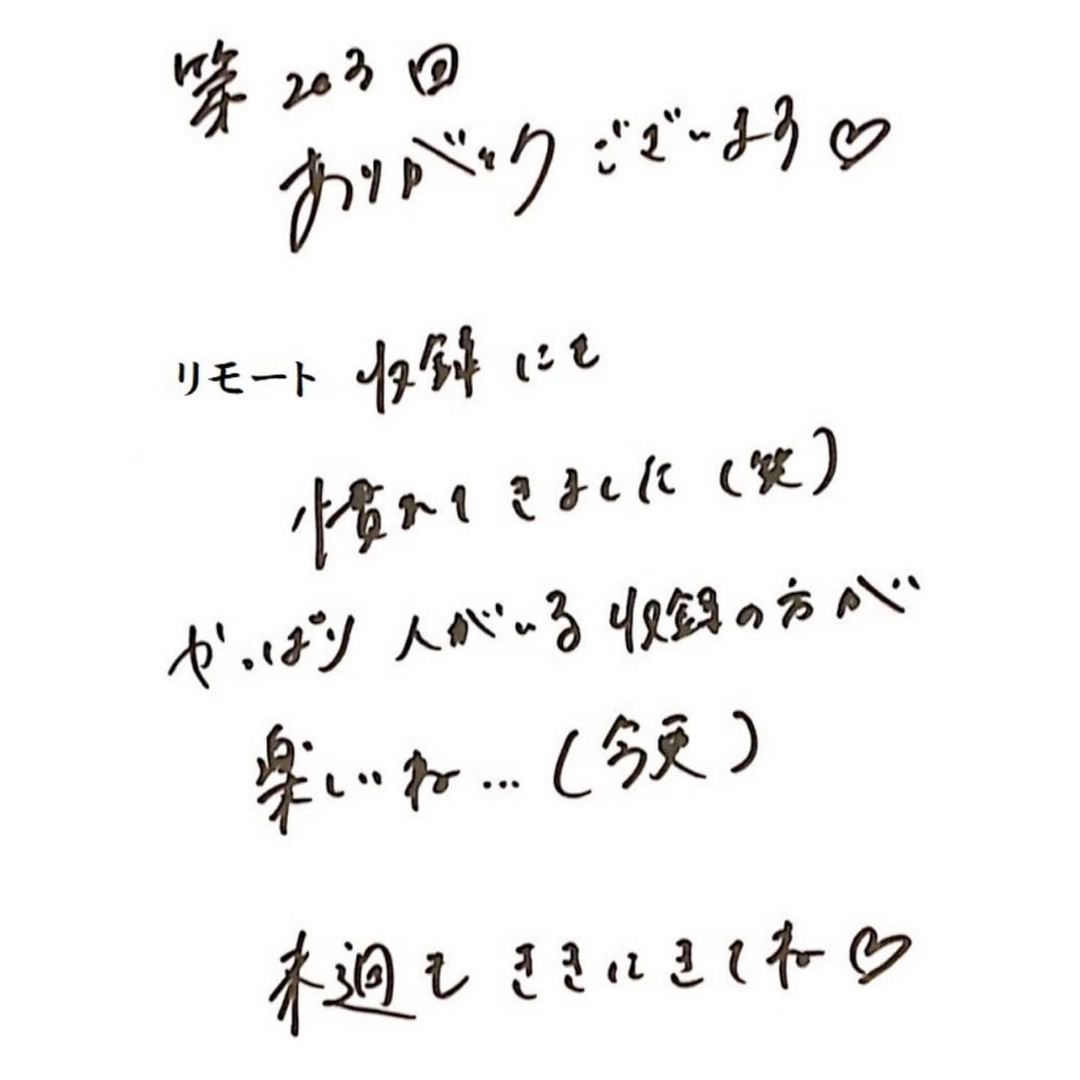 第203回
ありがベックございます♡
リモート 収録にも
慣れてきました(笑)
やっぱり 人がいる収録の方が
楽しいね…(今更)
来週も ききにきてね♡